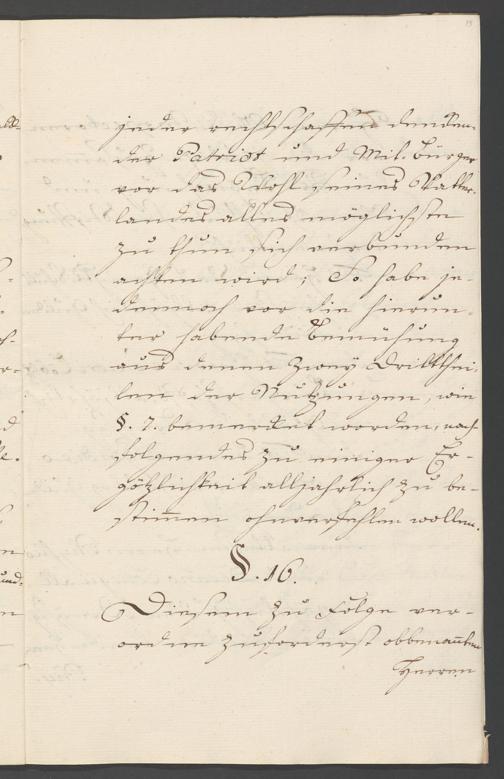 jeder rechtschaffen denken-
der Patriot und Mit-Bürger
vor das Wohl seines Vatter-
landes alles möglichste
zu thun sich verbunden
achten wird; So habe je-
dennoch vor die hierun-
ter habende Bemühung
aus denen zwey Dritthei-
len der Nutzungen, wie
§. 7. bemerket worden, nach-
folgendes zu einiger Er-
götzlichkeit alljährlich zu be-
stimmen ohnverfehlen wollen.
§. 16.
Diesem zu Folge ver-
ordne zuforderst obbenannten
Herren